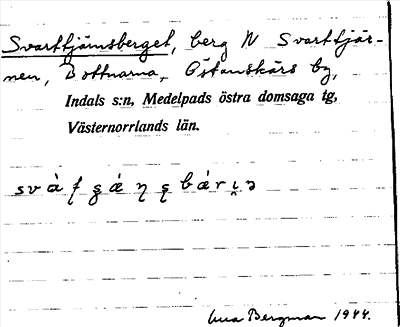 Svarttjärnsberget, berg N Svarttjär-
nen, Bottnarna, Östanskärs by,
Indals s:n, Medelpads östra domsaga tg,
Västernorrlands län.
Bergman 1944.